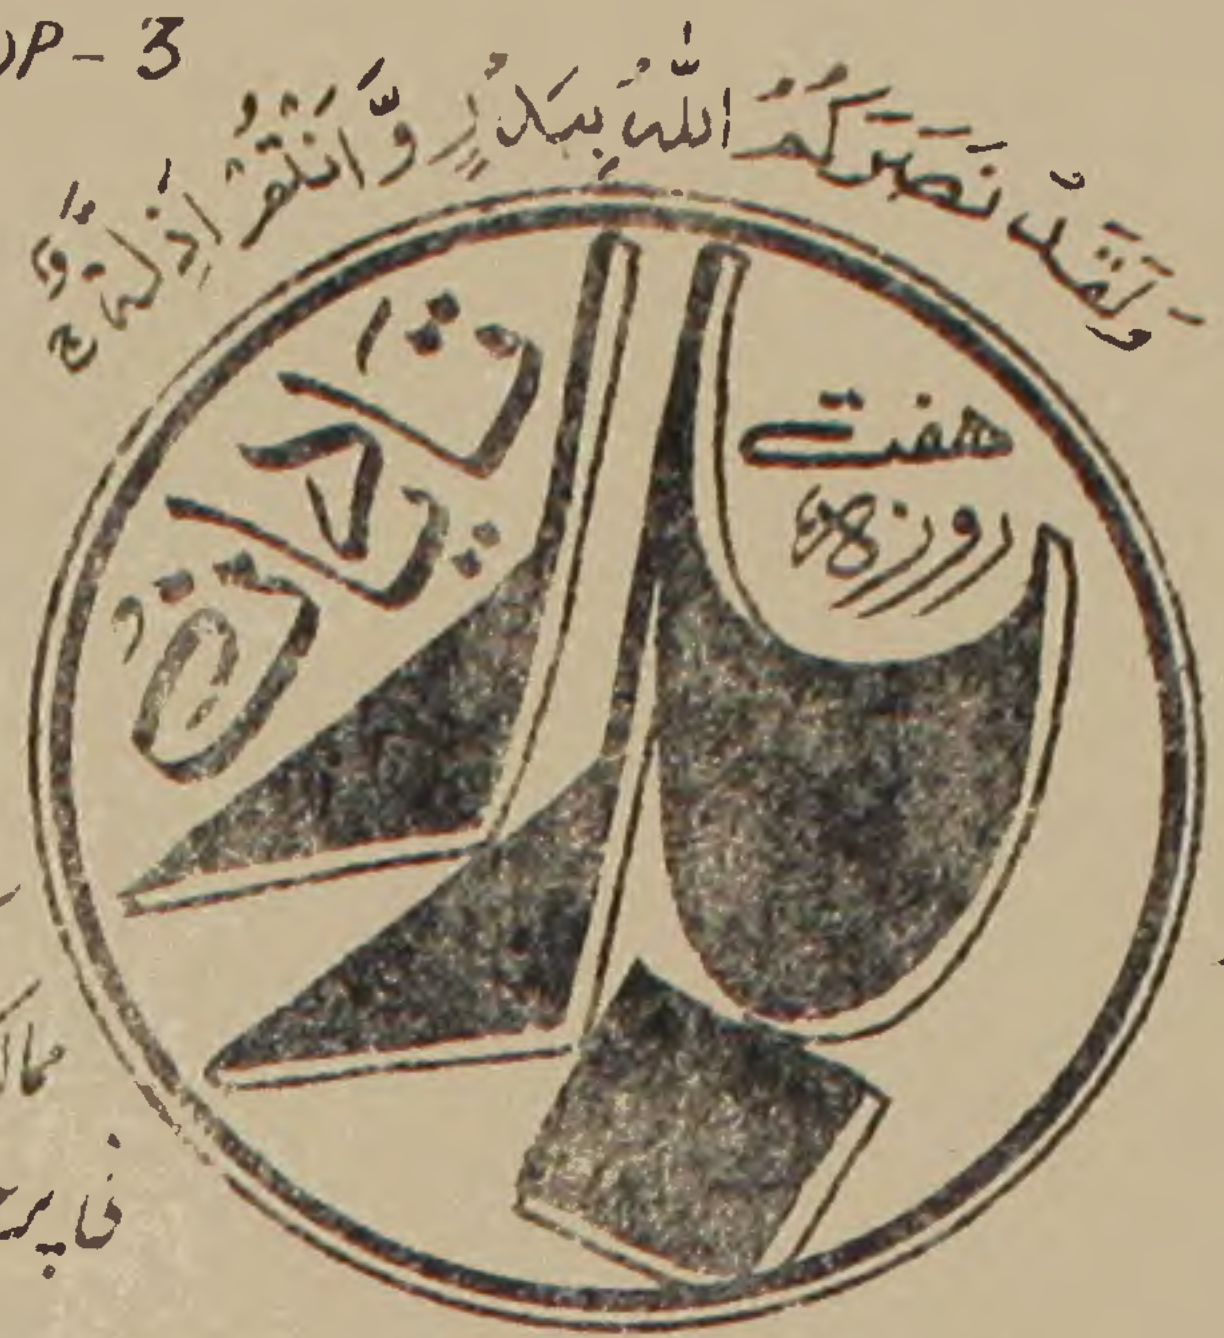 DP-3
وَلَقَدْ نَصَرَكُمُ اللّٰهُ بِبَدْرٍ وَّاَنْتُمْ اَذِلَّةٌ ج
ھفت
روزہ
بدر
قادیان
فی پرچ